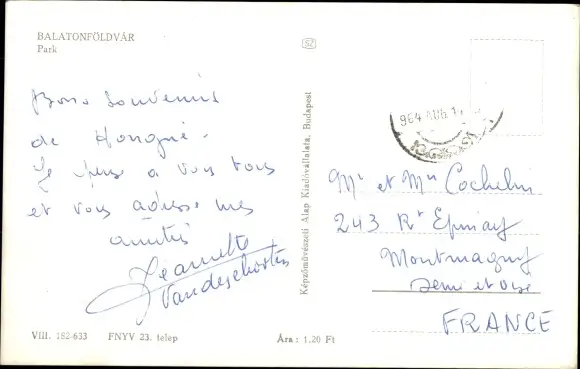 BALATONFÖLDVÁR
Park
Bons Souvenirs
de Hongrie.
Je pense a vous tous
et vous adresse mes
amitiés
Jeannette
Képzőművészeti Alap Kiadóvállalata, Budapest
964 AUG 1
Mr et Mme Cochelin
243 Rt Epinay
Montmagny
Seine et Oise
FRANCE
VIII. 182-633 FNYV 23. telep Ára: 1,20 Ft